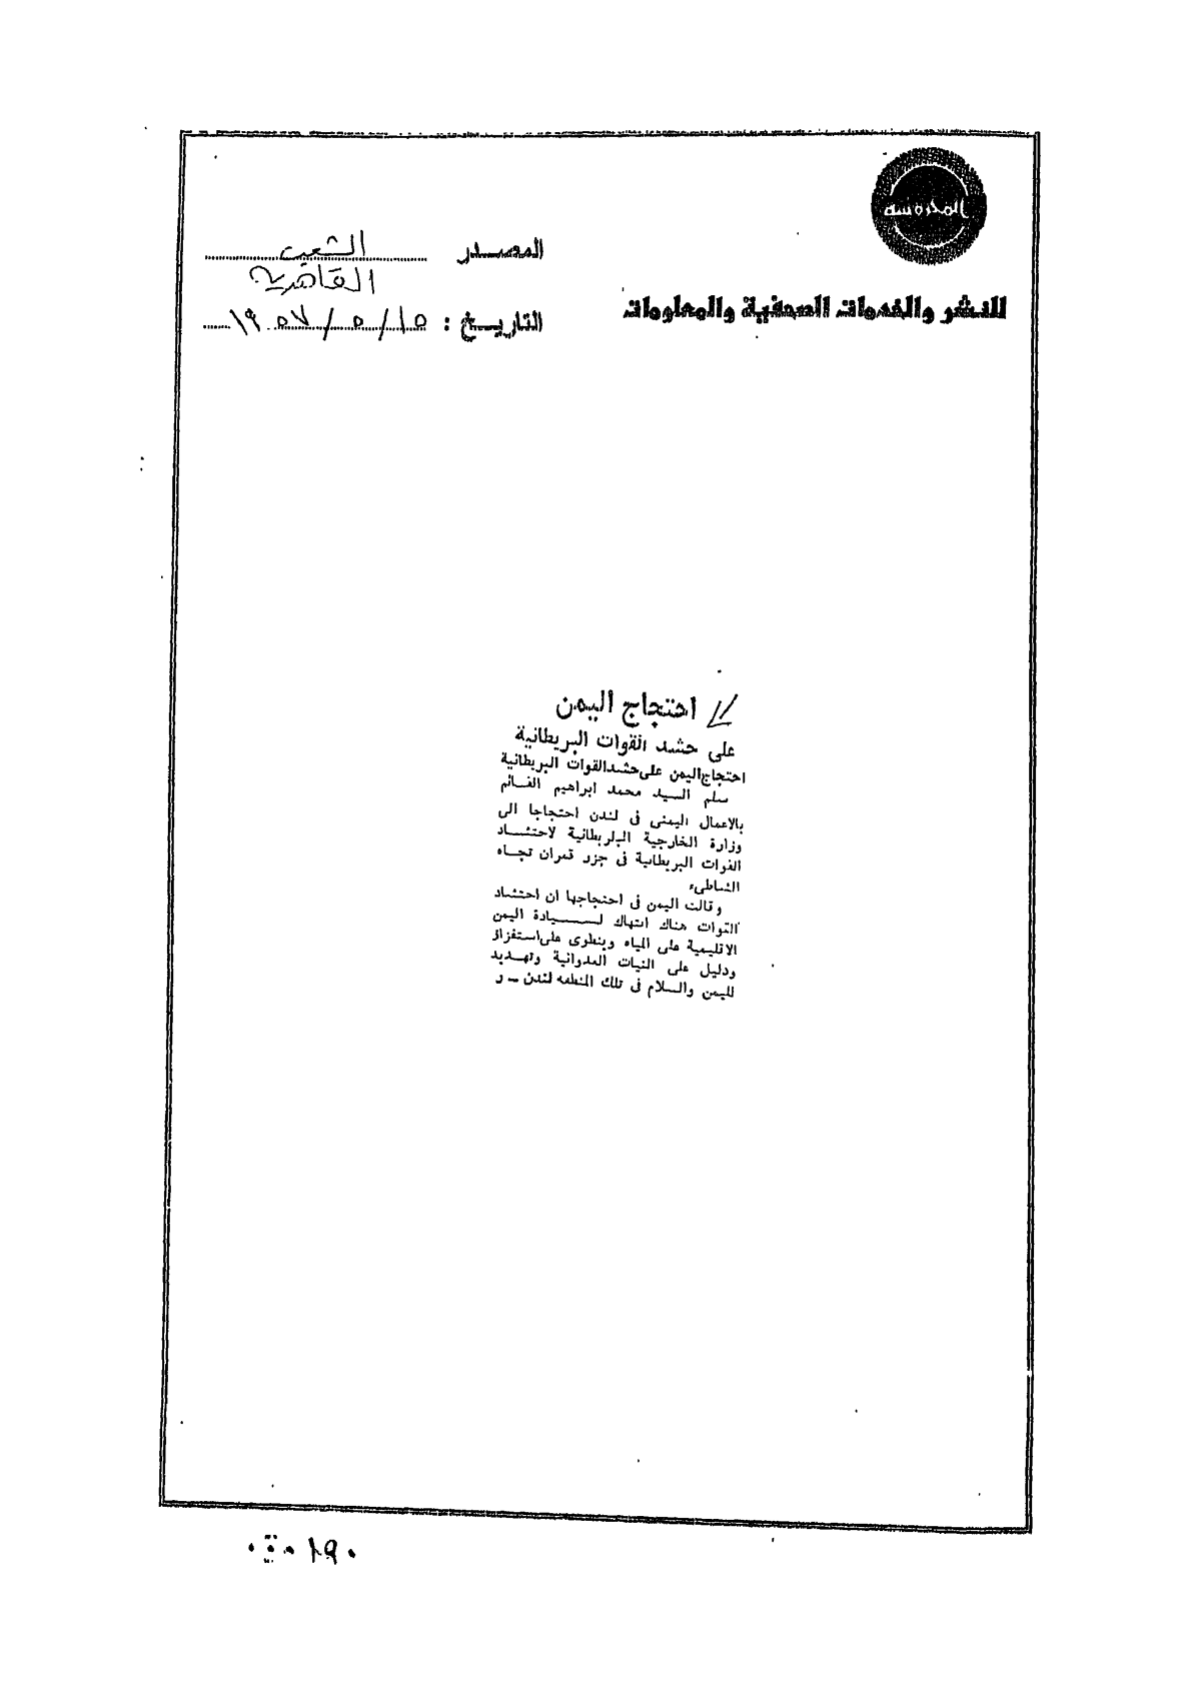 المحروسة
للنشر والخدمات الصحفية والمعلومات
المصدر الشعب
القاهرية
التاريخ : ١٥/ ٥ / ١٩٥٧
احتجاج اليمن
على حشد القوات البريطانية
احتجاج اليمن على حشد القوات البريطانية
سلم السيد محمد ابراهيم القائم
بالاعمال اليمنى فى لندن احتجاجا الى
وزارة الخارجية البلريطانية لاحتشاد
القوات البريطانية فى جزر قمران تجاه
الشاطىء
وقالت اليمن فى احتجاجها ان احتشاد
القوات هناك انتهاك لسيادة اليمن
الاقليمية على المياه وينطوى على استفزاز
ودليل على النيات العدوانية وتهديد
لليمن والسلام فى تلك المنطقه لندن ــ ر